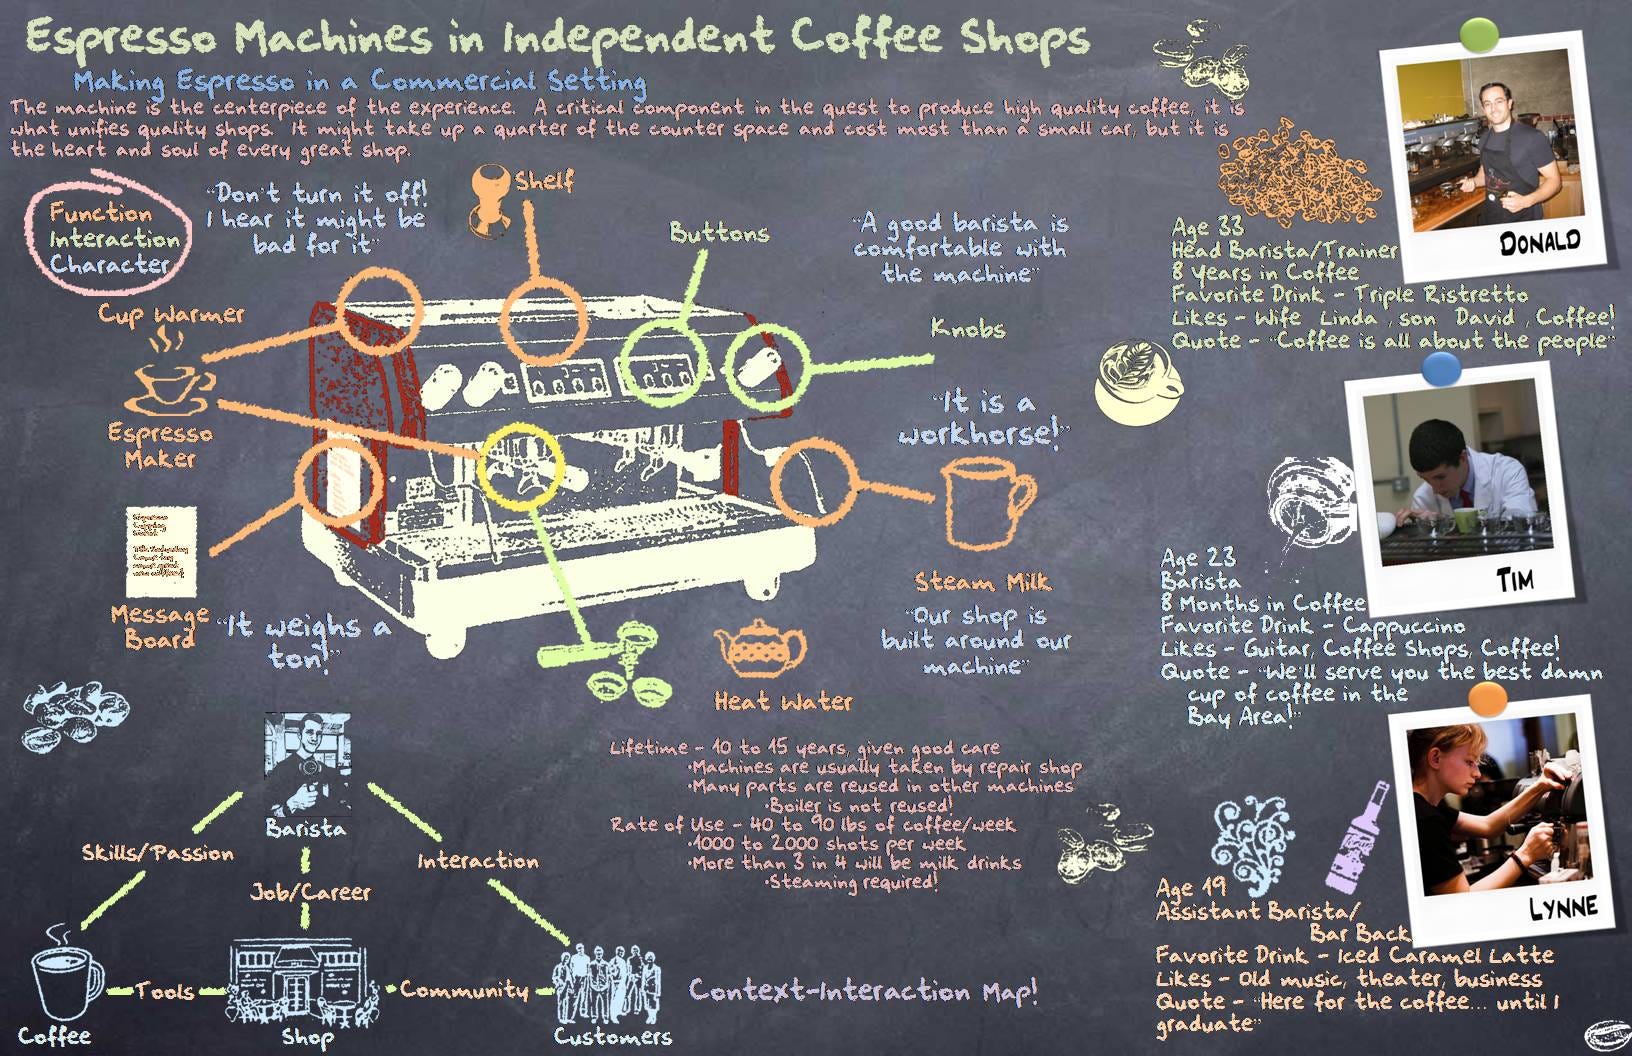 Espresso Machines in Independent Coffee Shops
Making Espresso in a Commercial Setting
The machine is the centerpiece of the experience. A critical component in the quest to produce high quality coffee, it is
what unifies quality shops. It might take up a quarter of the counter space and cost most than a small car, but it is
the heart and soul of every great shop.
Function
Interaction
Character
"Don't turn it off!
I hear it might be
bad for it"
Shelf
Buttons
"A good barista is
comfortable with
the machine"
Cup Warmer
Knobs
Espresso
Maker
"It is a
workhorse!"
Message
Board
"It weighs a
ton!"
Steam Milk
"Our shop is
built around our
machine"
Heat Water
Lifetime - 10 to 15 years, given good care
•Machines are usually taken by repair shop
•Many parts are reused in other machines
•Boiler is not reused!
Rate of Use - 40 to 90 lbs of coffee/week
•1000 to 2000 shots per week
•More than 3 in 4 will be milk drinks
•Steaming required!
Barista
Skills/Passion
Interaction
Job/Career
Tools
Community
Coffee
Shop
Customers
Context-Interaction Map!
DONALD
Age 33
Head Barista/Trainer
8 Years in Coffee
Favorite Drink - Triple Ristretto
Likes - Wife Linda , son David , Coffee!
Quote - "Coffee is all about the people"
TIM
Age 23
Barista
8 Months in Coffee
Favorite Drink - Cappuccino
Likes - Guitar, Coffee Shops, Coffee!
Quote - "We'll serve you the best damn
cup of coffee in the
Bay Area!"
LYNNE
Age 19
Assistant Barista/
Bar Back
Favorite Drink - Iced Caramel Latte
Likes - Old music, theater, business
Quote - "Here for the coffee... until I
graduate"